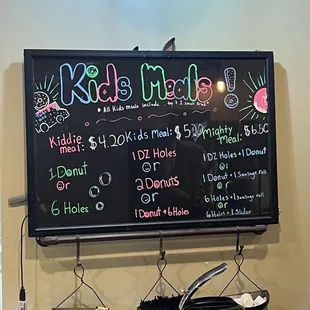 Kids Meals!
* All Kids meals include
1 small
Kiddie meal: $4.20
1 Donut
or
6 Holes
Kids Meal:
1 DZ Holes
or
2 Donuts
or
1 Donut + 6 Holes
Mighty Meal: $6.50
1 DZ Holes + 1 Donut
or
1 Donut + 1 Sausage Roll
or
6 Holes + 1 Sausage Roll
or
6 Holes + 1 Slider